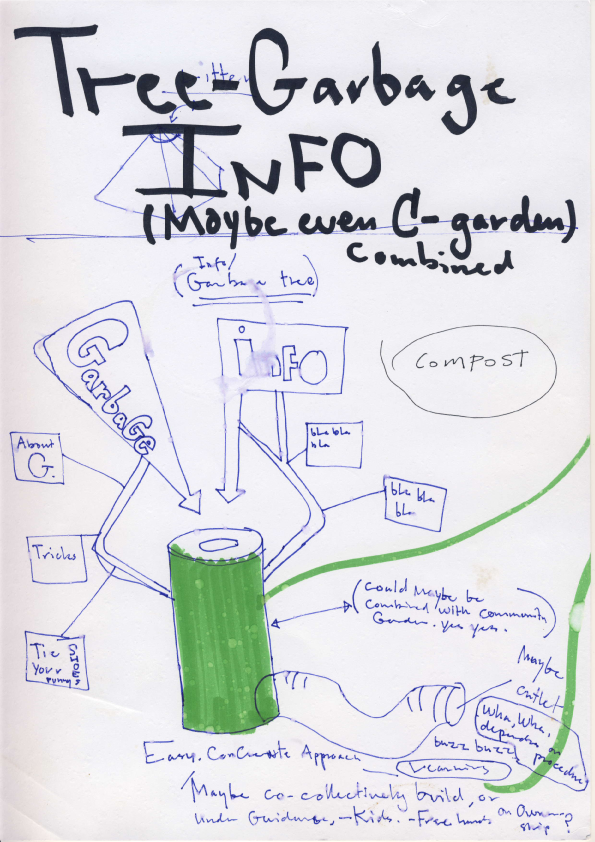 Tree-Garbage
INFO
(Maybe even C-garden)
combined
Info/
(Garbage tree)
Garbage
INFO
COMPOST
About
G.
bla bla
bla
bla bla
bla
Tricks
(could maybe be
combined with community
Garden. yes yes.
Tie
your
SHOES
Maybe
outlet
Wha, Wha,
depends on
procedure
buzz buzz
Easy. Concrete Approach
Learning
Maybe co-collectively build, or
under Guidance, - Kids. - Free hands on Owner
ship ?